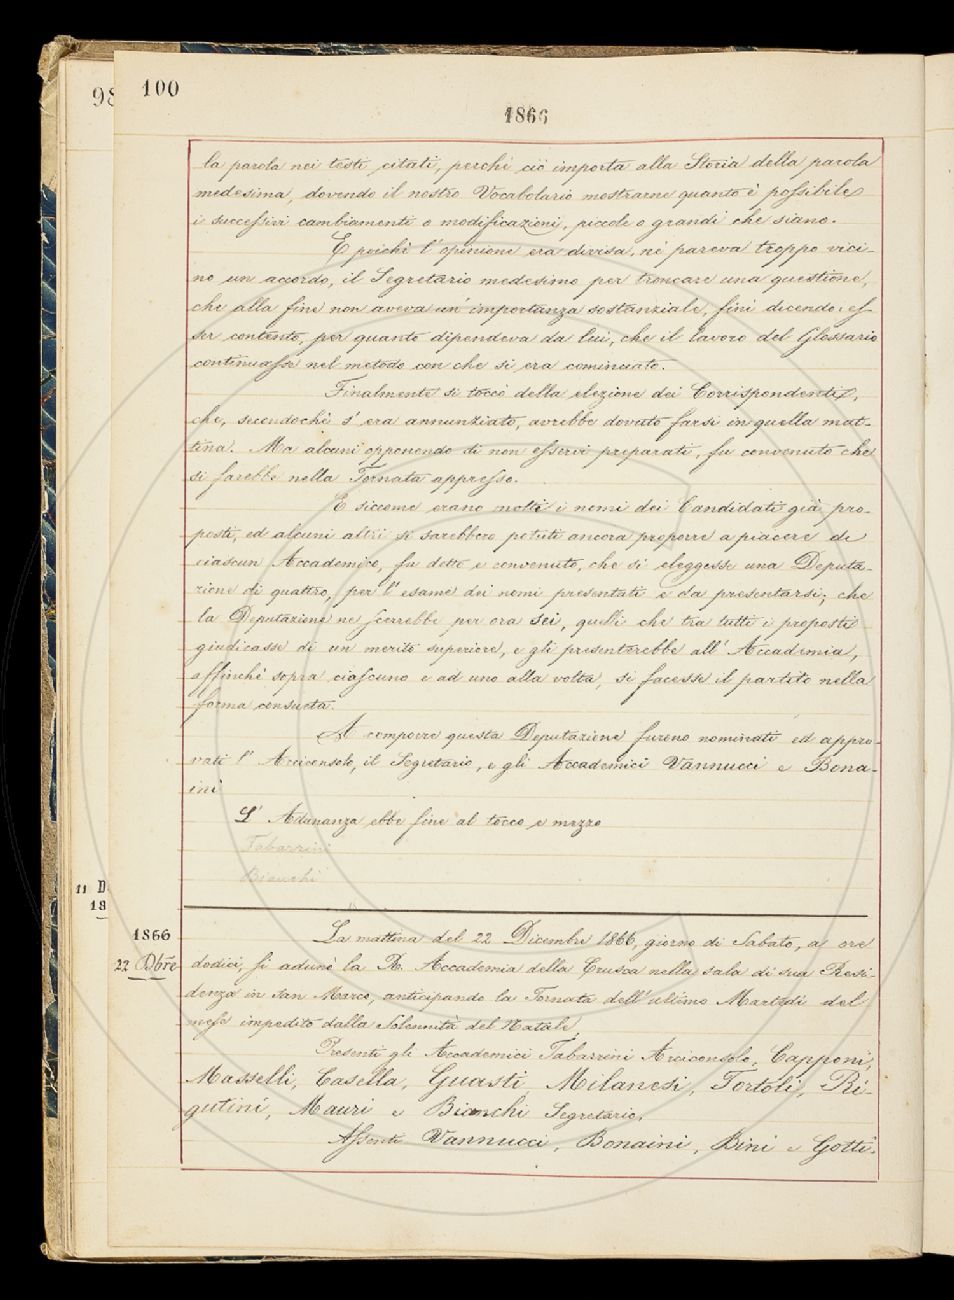 98
100
1866
la parola nei testi citati, perchè ciò importa alla Storia della parola
medesima, dovendo il nostro Vocabolario mostrarne quanto è possibile
i successivi cambiamenti o modificazioni, piccole o grandi che siano.
E poichè l'opinione era divisa, nè pareva troppo vici-
no un accordo, il Segretario medesimo per troncare una questione,
che alla fine non aveva un'importanza sostanziale, finì dicendo: es-
ser contento, per quanto dipendeva da lui, che il lavoro del Glossario
continuasse nel metodo con che si era cominciato.
Finalmente si toccò della elezione dei Corrispondenti,
che, secondochè s'era annunziato, avrebbe dovuto farsi in quella mat-
tina. Ma alcuni opponendo di non esservi preparati, fu convenuto che
si farebbe nella Tornata appresso.
E siccome erano molti i nomi dei Candidati già pro-
posti, ed alcuni altri si sarebbero potuti ancora proporre a piacere di
ciascun Accademico, fu detto e convenuto, che si eleggesse una Deputa-
zione di quattro, per l'esame dei nomi presentati e da presentarsi; che
la Deputazione ne scerrebbe per ora sei, quelli che tra tutti i proposti
giudicasse di un merito superiore, e gli presenterebbe all'Accademia,
affinchè sopra ciascuno e ad uno alla volta, si facesse il partito nella
forma consueta.
A comporre questa Deputazione furono nominati ed appro-
vati l'Arciconsolo, il Segretario, e gli Accademici Vannucci e Bona-
ini
L'Adunanza ebbe fine al tocco e mezzo
Tabarrini
Bianchi
11 D
18
1866
22 Dbre
La mattina del 22 Dicembre 1866, giorno di Sabato, a ore
dodici, si adunò la R. Accademia della Crusca nella sala di sua Resi-
denza in San Marco, anticipando la Tornata dell'ultimo Martedì del
mese impedito dalla Solennità del Natale.
Presenti gli Accademici Tabarrini Arciconsolo, Capponi,
Masselli, Casella, Guasti, Milanesi, Tortoli, Ri-
gutini, Mauri e Bianchi Segretario.
Assenti Vannucci, Bonaini, Bini e Gotti.